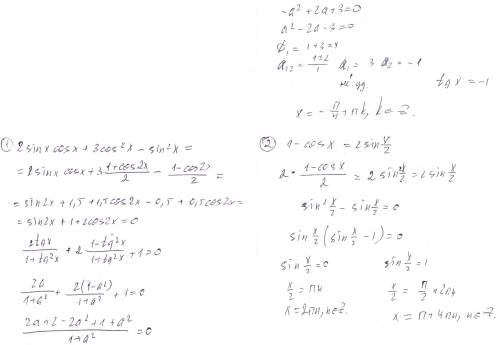 -a² + 2a + 3 = 0
a² - 2a - 3 = 0
D₁ = 1 + 3 = 4
a₁,₂ = (1±2)/1 a₁ = 3 a₂ = -1
tg x = -1
x = -π/4 + πk, k ∈ Z.
① 2 sin x cos x + 3 cos² x - sin² x =
= 2 sin x cos x + 3 (1+cos2x)/2 - (1-cos2x)/2 =
= sin2x + 1,5 + 1,5cos2x - 0,5 + 0,5cos2x =
= sin2x + 1 + 2cos2x = 0
2tgx/(1+tg²x) + 2 (1-tg²x)/(1+tg²x) + 1 = 0
2a/(1+a²) + 2(1-a²)/(1+a²) + 1 = 0
(2a + 2 - 2a² + 1 + a²)/(1+a²) = 0
② 1 - cos x = 2 sin x/2
2 · (1-cos x)/2 = 2 sin² x/2 = 2 sin x/2
sin² x/2 - sin x/2 = 0
sin x/2 (sin x/2 - 1) = 0
sin x/2 = 0 sin x/2 = 1
x/2 = πn x/2 = π/2 + 2πn
x = 2πn, n∈Z. x = π + 4πn, n∈Z.